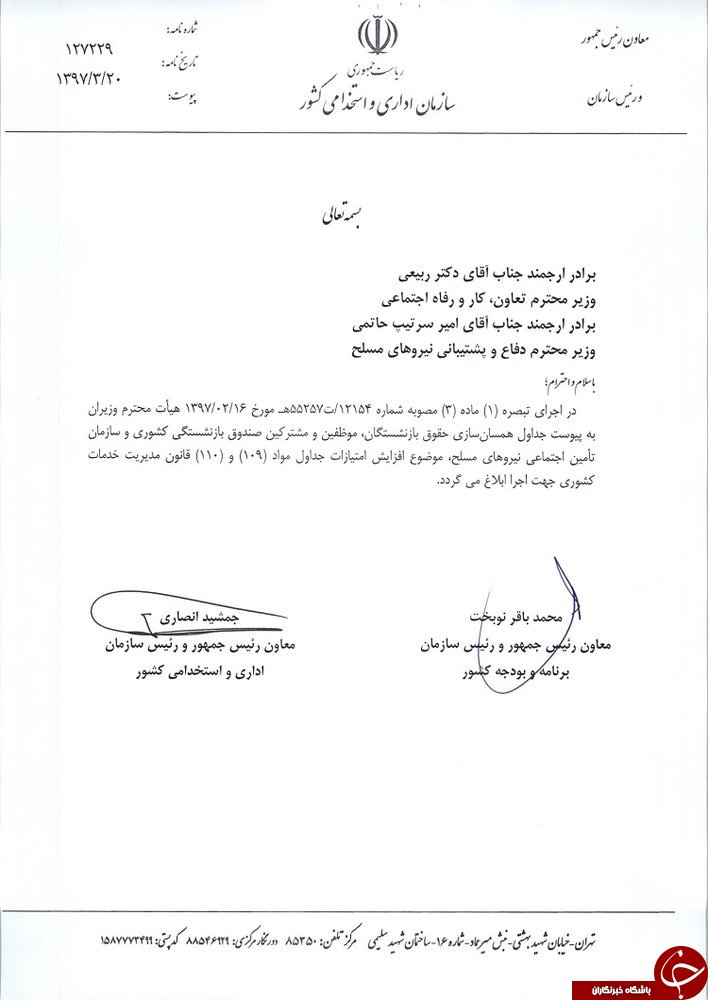 معاون رئیس جمهور
و رئیس سازمان
ریاست جمهوری
سازمان اداری و استخدامی کشور
شماره نامه: ۱۲۷۲۲۹
تاریخ نامه: ۱۳۹۷/۳/۲۰
پیوست:
بسمه تعالی
برادر ارجمند جناب آقای دکتر ربیعی
وزیر محترم تعاون، کار و رفاه اجتماعی
برادر ارجمند جناب آقای امیر سرتیپ حاتمی
وزیر محترم دفاع و پشتیبانی نیروهای مسلح
با سلام و احترام؛
در اجرای تبصره (۱) ماده (۳) مصوبه شماره ۱۲۱۵۴/ت۵۵۲۵۷هـ مورخ ۱۳۹۷/۰۲/۱۶ هیأت محترم وزیران
به پیوست جداول همسان‌سازی حقوق بازنشستگان، موظفین و مشترکین صندوق بازنشستگی کشوری و سازمان
تأمین اجتماعی نیروهای مسلح، موضوع افزایش امتیازات جداول مواد (۱۰۹) و (۱۱۰) قانون مدیریت خدمات
کشوری جهت اجرا ابلاغ می گردد.
محمد باقر نوبخت
معاون رئیس جمهور و رئیس سازمان
برنامه و بودجه کشور
جمشید انصاری
معاون رئیس جمهور و رئیس سازمان
اداری و استخدامی کشور
تهران-خیابان شهید بهشتی-نبش میرعماد-شماره ۱۶-ساختمان شهید سلیمی مرکز تلفن: ۸۵۳۵۰ دورنگار مرکزی: ۸۸۵۴۶۹۲۹ کد پستی: ۱۵۸۷۷۷۳۴۹۹
باشگاه خبرنگاران